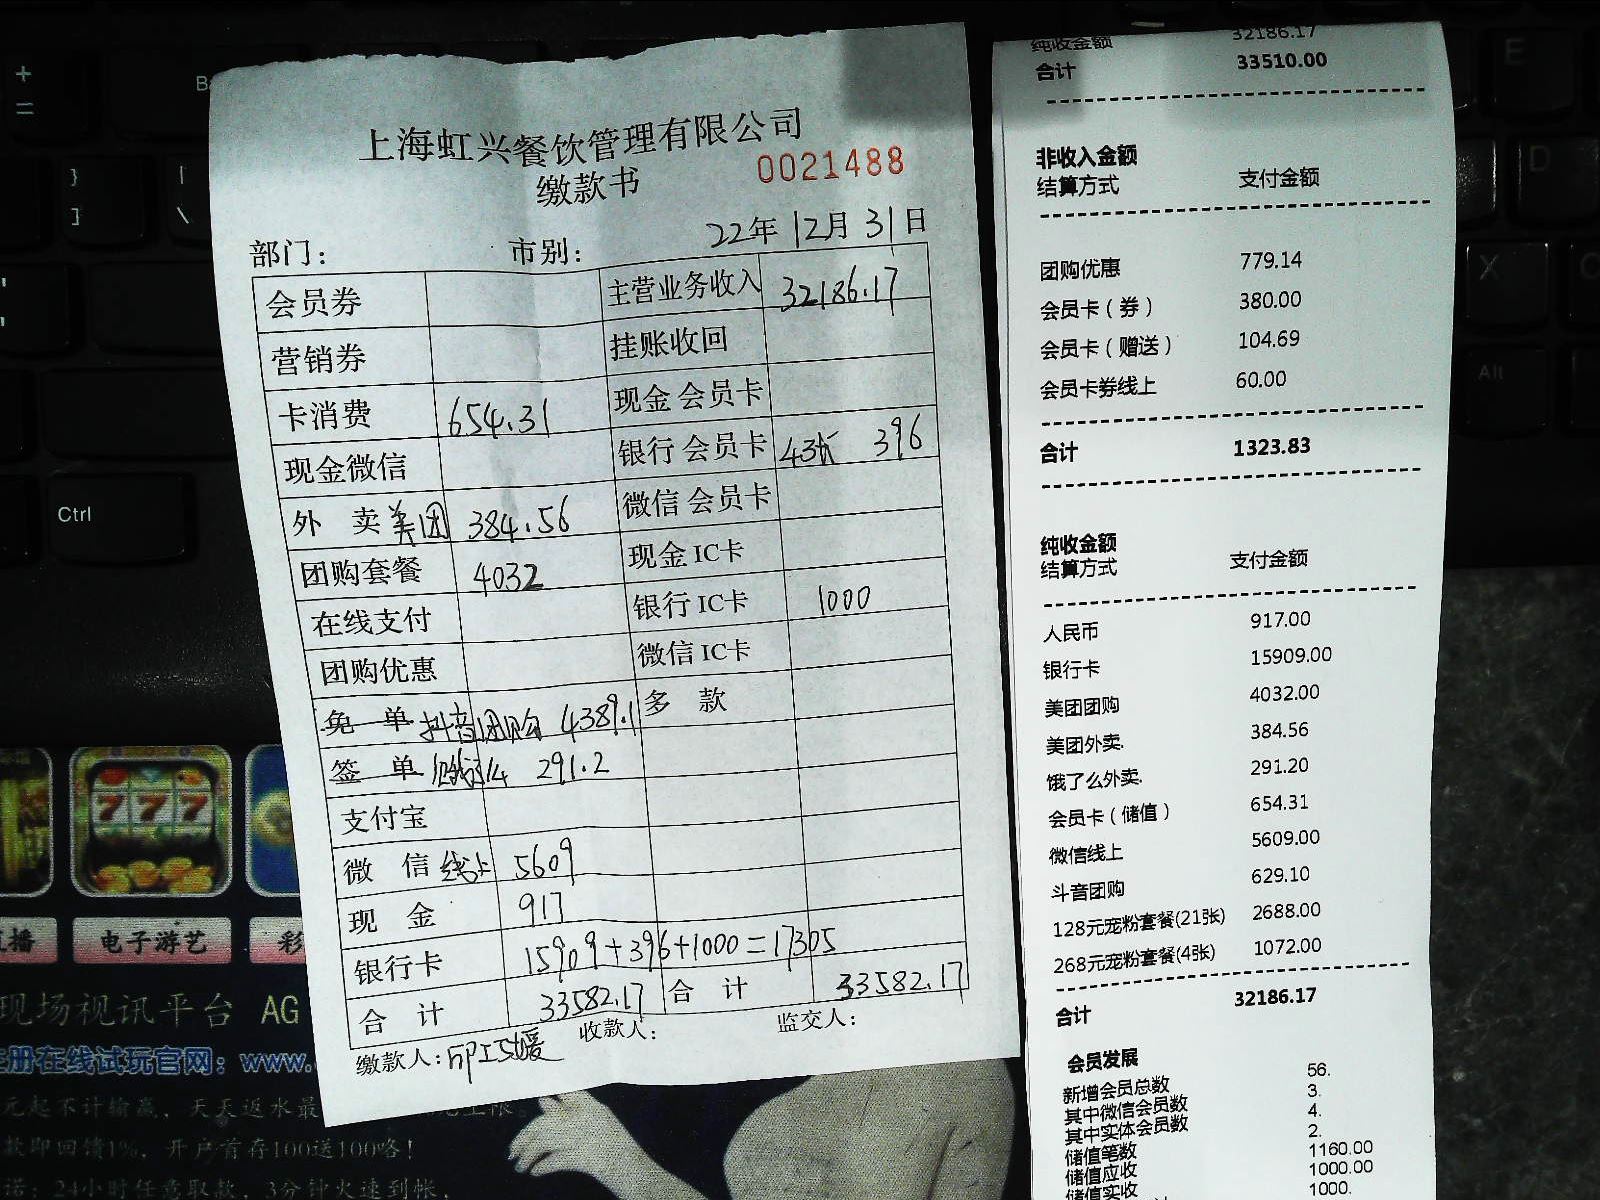 上海虹兴餐饮管理有限公司
缴款书
0021488
部门： 市别： 22年12月31日
会员券 主营业务收入 32186.17
营销券 挂账收回
卡消费 654.31 现金会员卡
现金微信 银行会员卡 43张 396
外 卖 美团 384.56 微信会员卡
团购套餐 4032 现金IC卡
在线支付 银行IC卡 1000
团购优惠 微信IC卡
免 单 抖音团购 4389.1 多 款
签 单 饿了么 291.2
支付宝
微 信 线上 5609
现 金 917
银行卡 15909+396+1000=17305
合 计 33582.17 合 计 33582.17
缴款人： 收款人： 监交人：
纯收金额 32186.17
合计 33510.00
非收入金额
结算方式 支付金额
团购优惠 779.14
会员卡（券） 380.00
会员卡（赠送） 104.69
会员卡券线上 60.00
合计 1323.83
纯收金额
结算方式 支付金额
人民币 917.00
银行卡 15909.00
美团团购 4032.00
美团外卖. 384.56
饿了么外卖. 291.20
会员卡（储值） 654.31
微信线上 5609.00
斗音团购 629.10
128元宠粉套餐(21张) 2688.00
268元宠粉套餐(4张) 1072.00
合计 32186.17
会员发展
新增会员总数 56.
其中微信会员数 3.
其中实体会员数 4.
储值笔数 2.
储值应收 1160.00
储值实收 1000.00
1000.
+
=
}
]
|
\
Ctrl
E
D
X
C
Alt
777
直播
电子游艺
彩
现场视讯平台 AG
册在线试玩官网：www.
元起不计输赢，天天返水最
款即回馈1%，开户首存100送100咯！
诺：24小时任意取款，3分钟火速到帐，